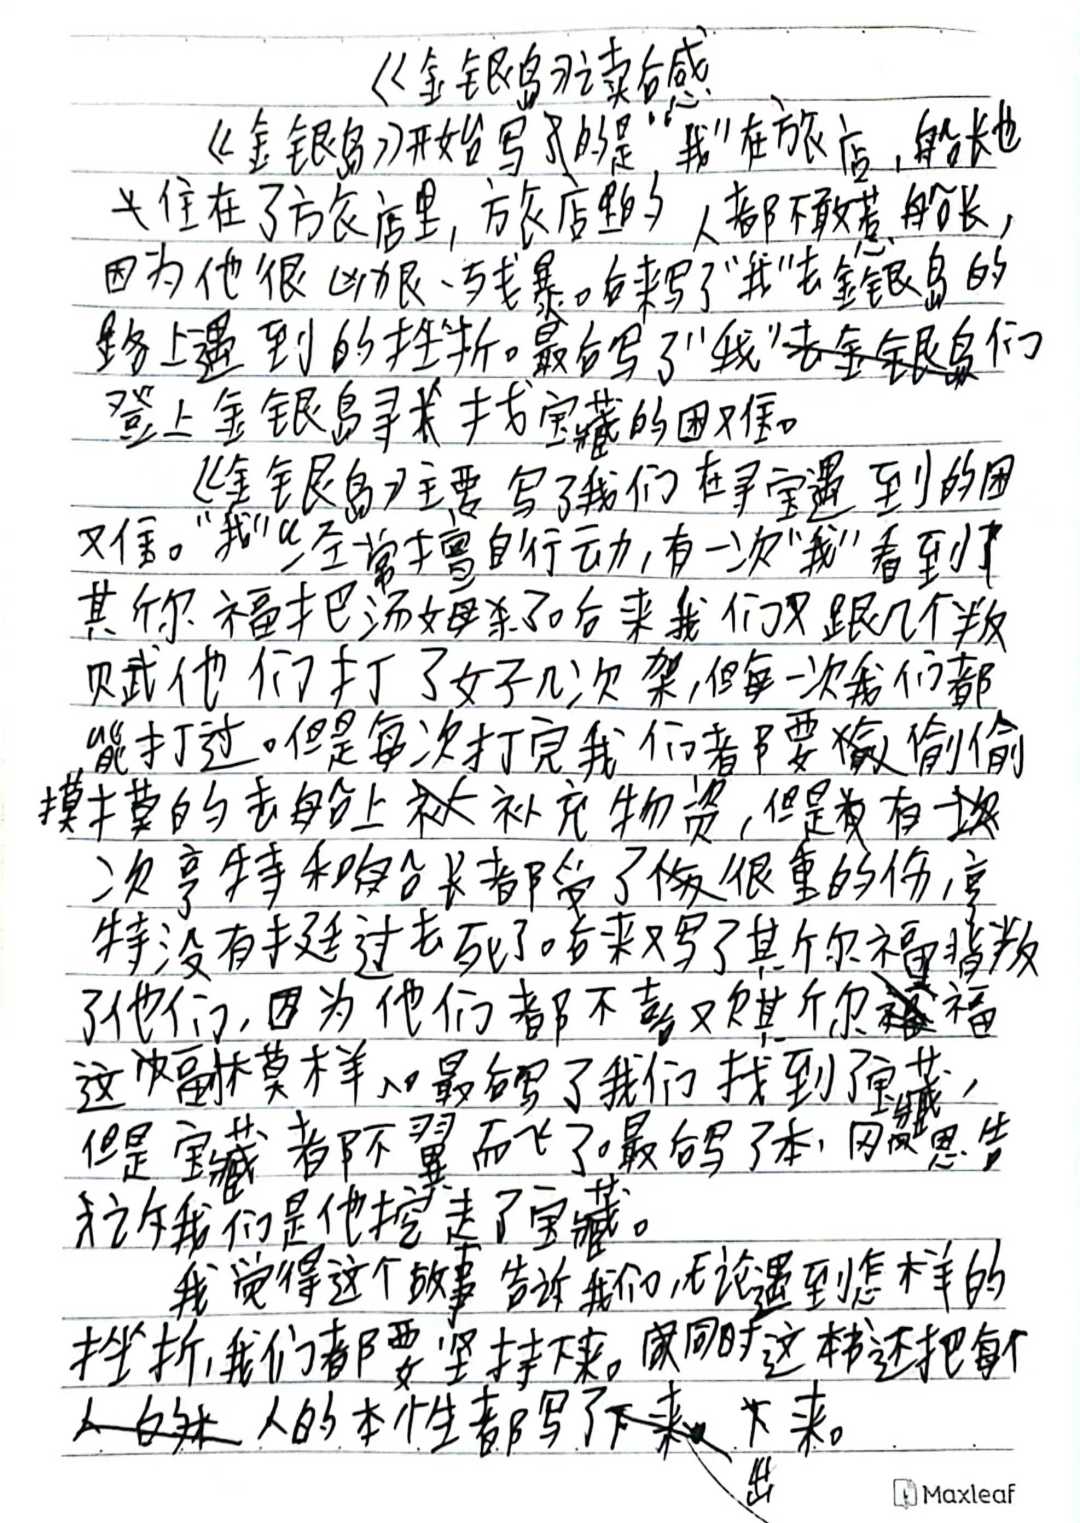 《金银岛》读后感
《金银岛》开始写了的是“我”在旅店,船长也
住在了旅店里,旅店里的人都不敢惹船长,
因为他很凶狠、残暴。后来写了“我”去金银岛的
路上遇到的挫折。最后写了“我”们
登上金银岛寻找宝藏的困难。
《金银岛》主要写了我们在寻宝遇到的困
难。“我”经常擅自行动,有一次“我”看到了
其尔福把汤姆杀了。后来我们又跟几个叛
贼他们打了好几次架,但每一次我们都
能打过。但是每次打完我们都要偷偷
摸摸的去船上补充物资,但是有一
次亨特和船长都受了很重的伤,亨
特没有挺过去死了。后来又写了其尔福背叛
了他们,因为他们都不喜欢其尔福
这幅模样。最后写了我们找到了宝藏,
但是宝藏都不翼而飞了。最后写了本·冈恩告
诉我们是他挖走了宝藏。
我觉得这个故事告诉我们,无论遇到怎样的
挫折,我们都要坚持下来。同时这本书还把每个
人的本性都写了下来。
出
Maxleaf